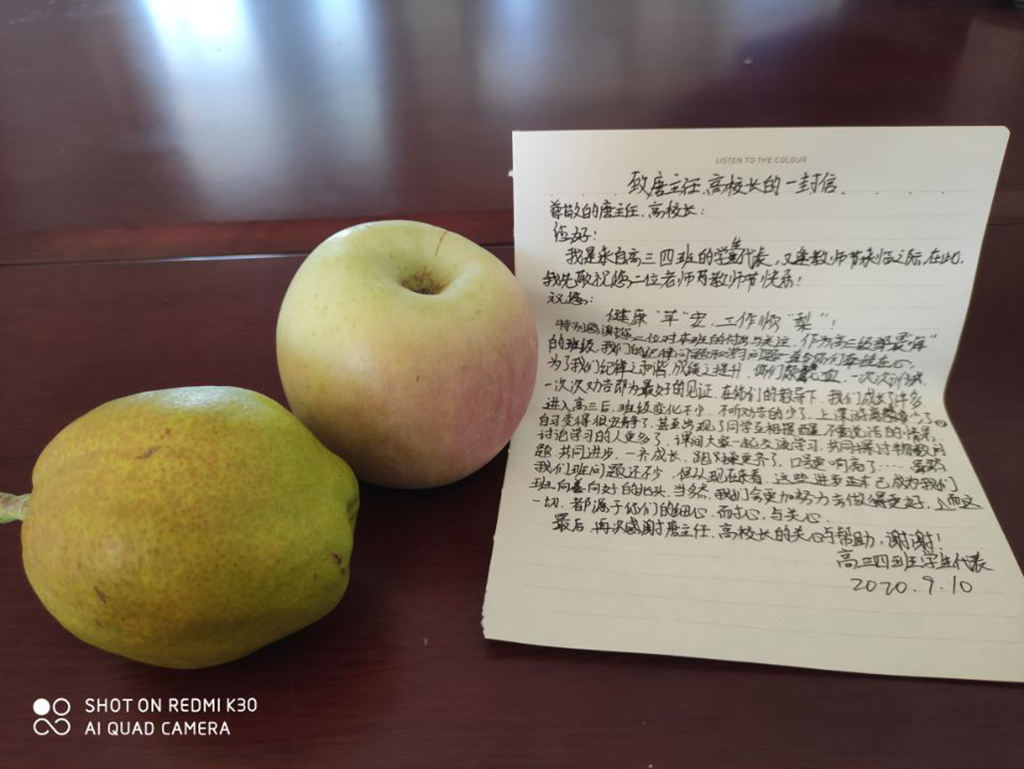 LISTEN TO THE COLOUR
致唐主任、高校长的一封信
尊敬的唐主任、高校长:
您好!
我是来自高三四班的学生代表,又逢教师节来临之际,在此,
我先敬祝您二位老师教师节快乐!
祝您:
健康"苹"安、工作顺"梨"!
特别感谢您二位对本班的付出与关注,作为高三级部最
的班级,我们的纪律问题和学习问题一直令你们牵挂在心
为了我们纪律之和谐,成绩之提升,你们 一次次
一次次劝告即为最好的见证,在你们的教导下,我们成长了许多
进入高三后,班级变化不少,不听劝告的少了,上课 少了
自习变得很安静了,甚至出现了同学互相提醒,不要说话的情景,
讨论学习的人更多了,课间大家一起交流学习,共同探讨 问
题,共同进步,一齐成长,跑操更齐了,口号更响亮了……虽然
我们班问题还不少,但从现在来看,这些进步正才已成为我们
班向善向好的兆头,当然,我们会更加努力去做得更好,而这
一切,都源于你们的细心、耐心、与关心
最后,再次感谢唐主任、高校长的关心与帮助,谢谢!
高三四班学生代表
2020.9.10
SHOT ON REDMI K30
AI QUAD CAMERA